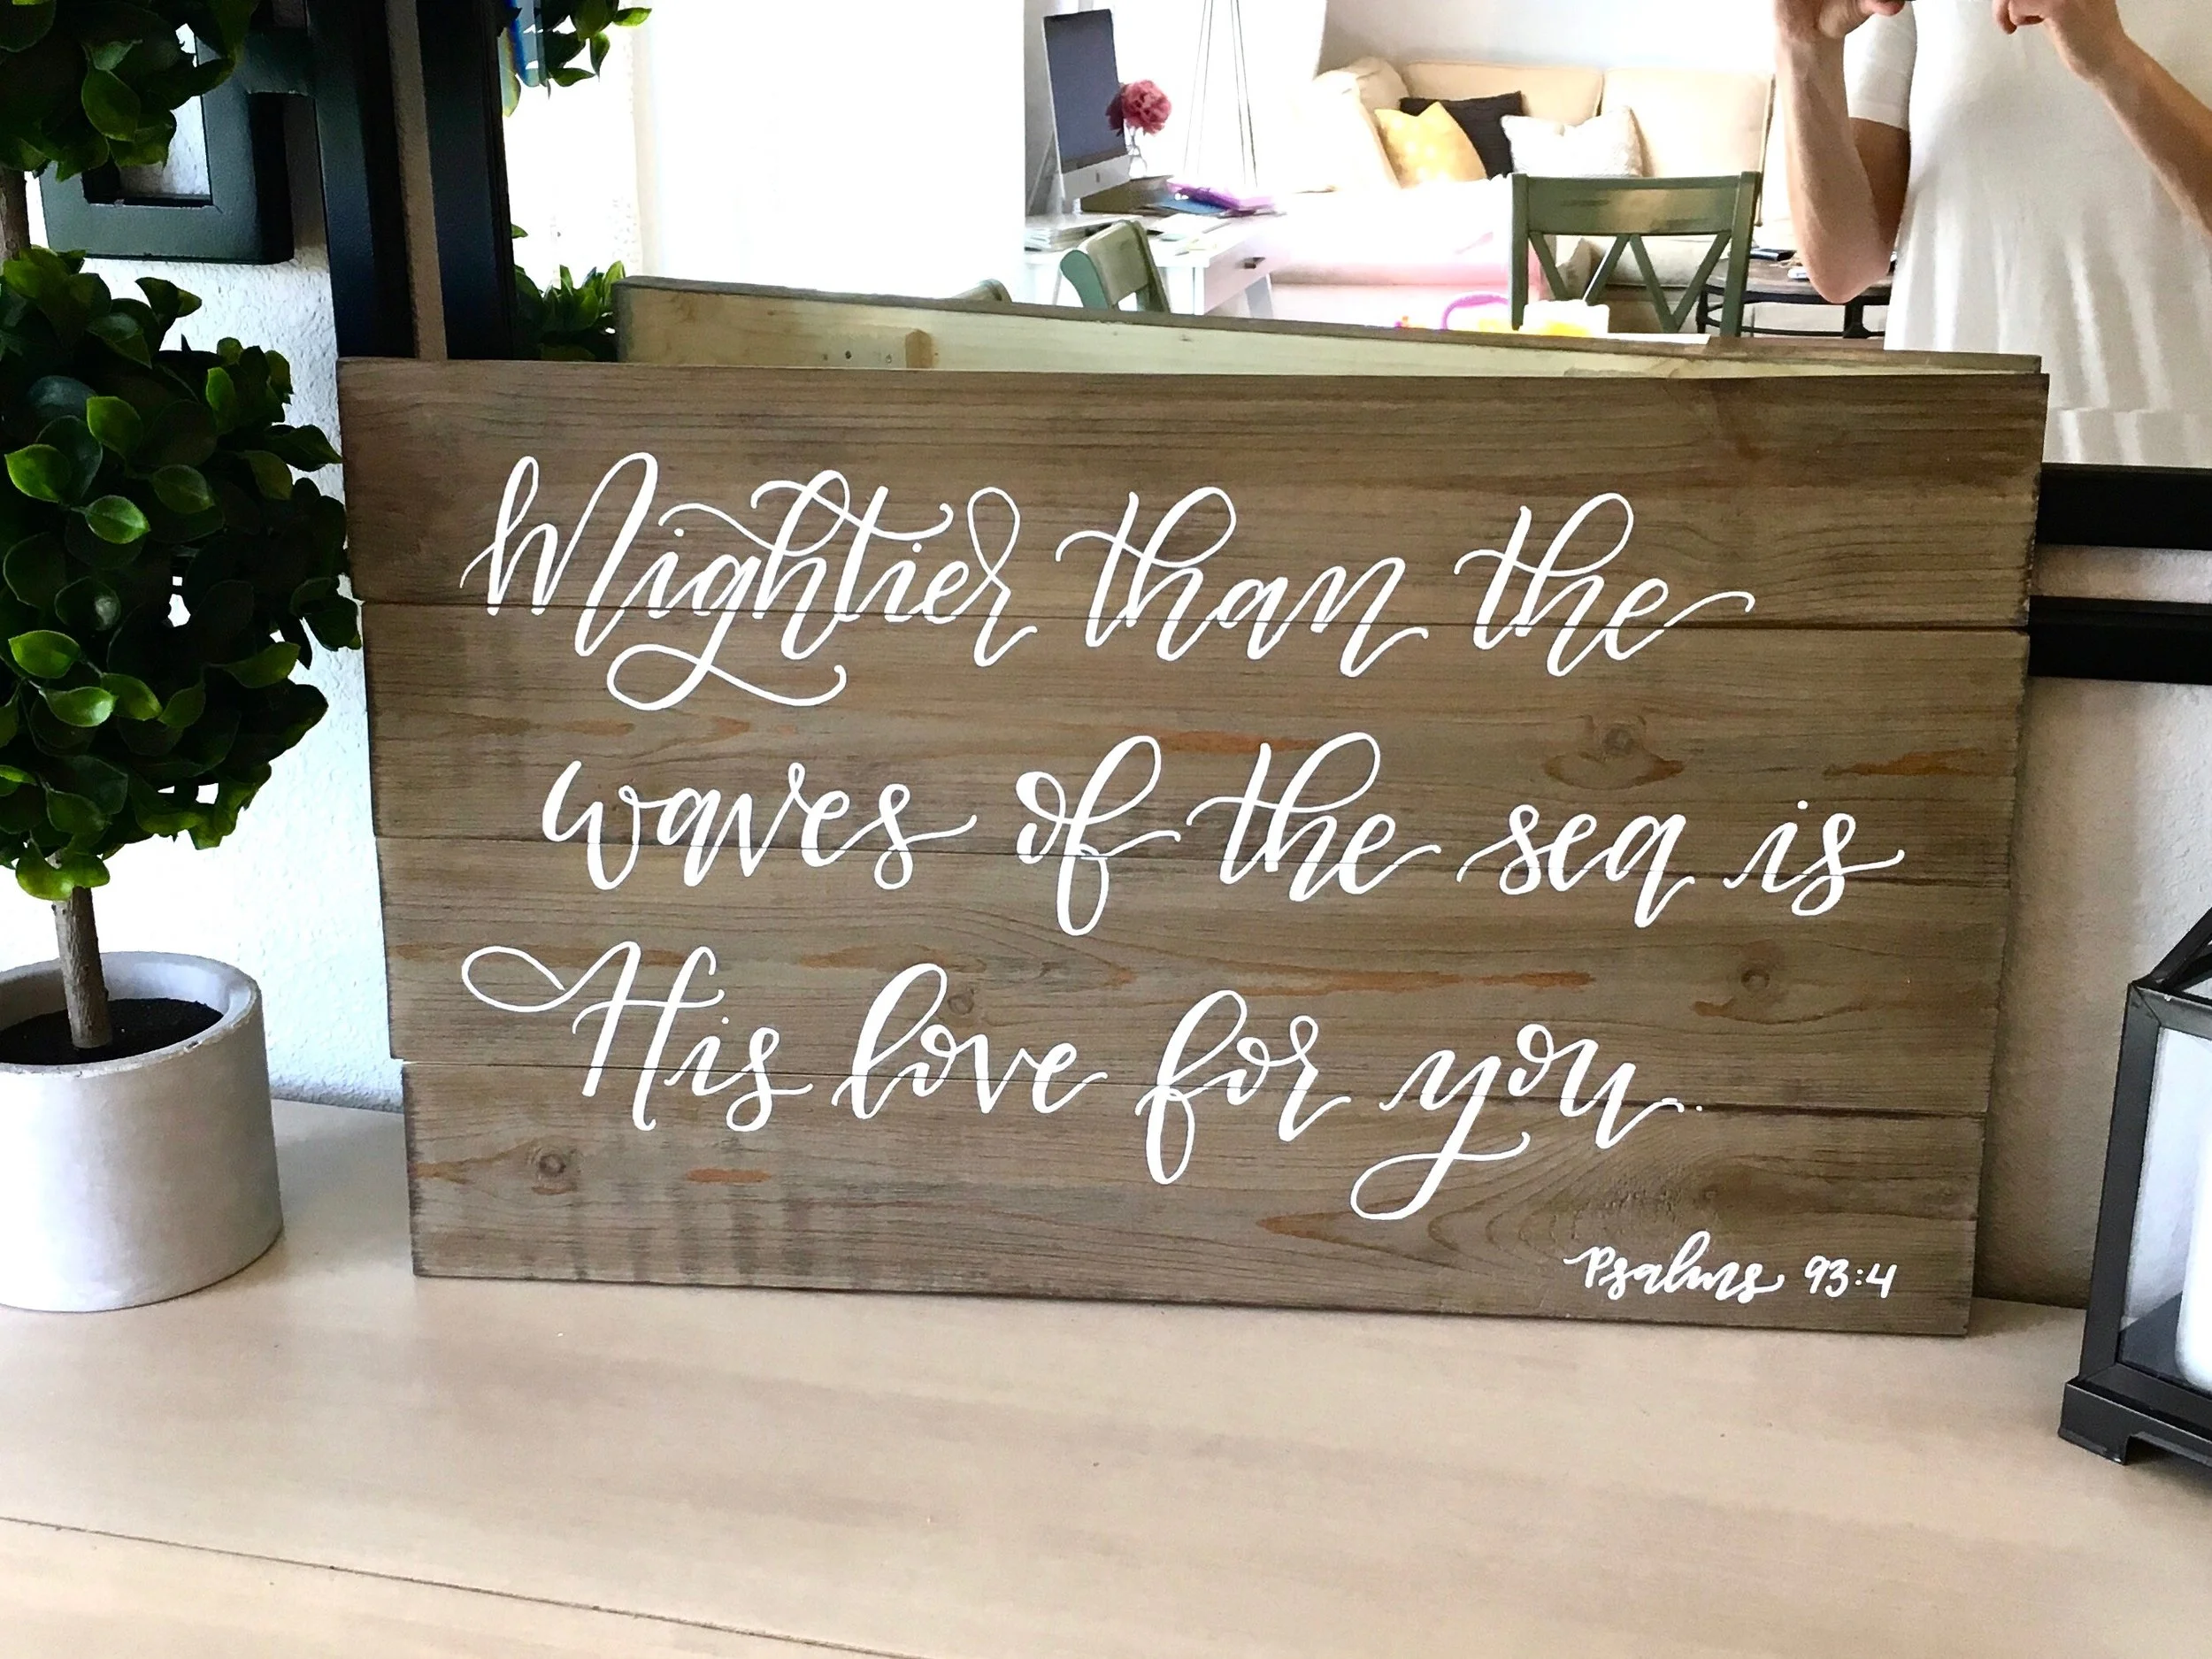 Mightier than the
waves of the sea is
His love for you.
Psalms 93:4